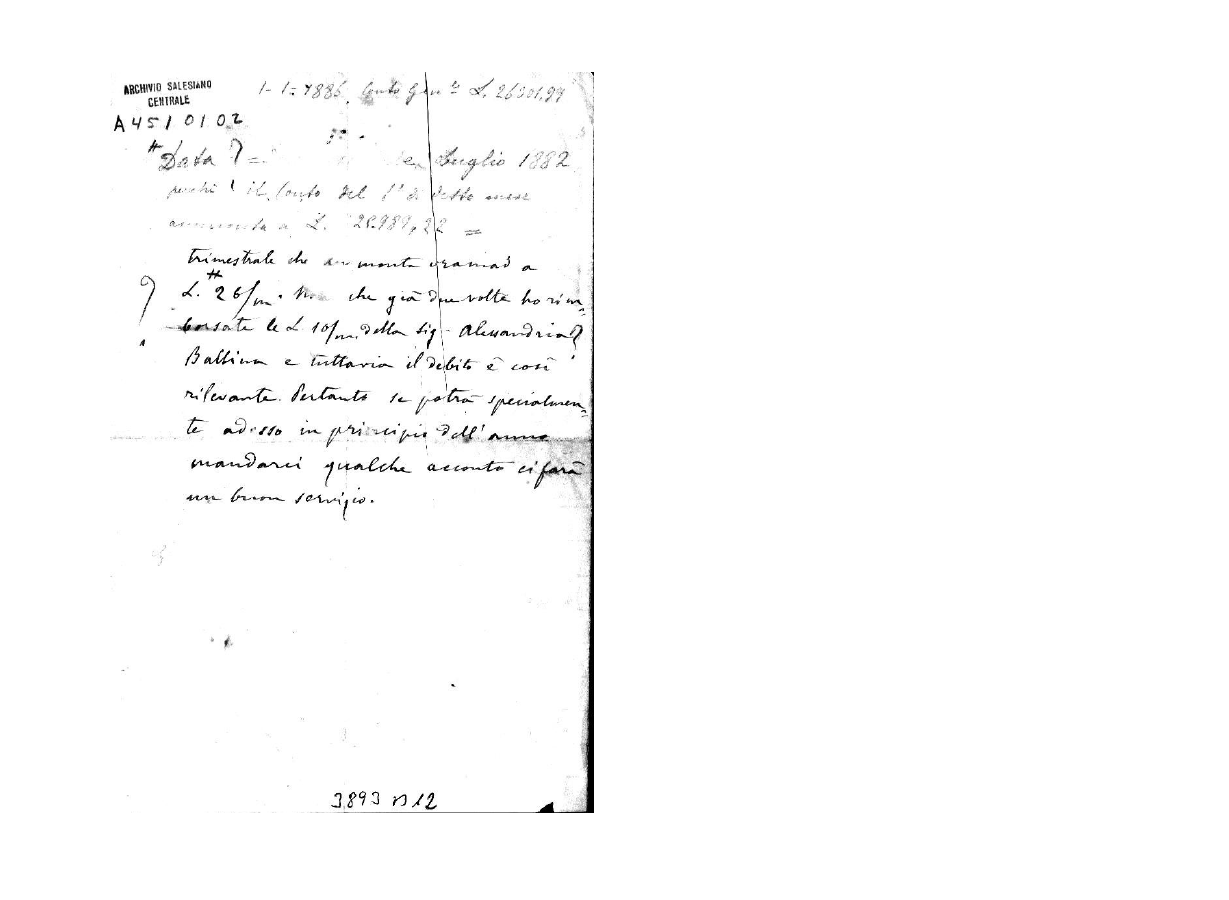 ARCHIVIO SALESIANO
CENTRALE
1-1-1886. Conto Gen.le L. 26301,99
A 451 01 02
# Data ? = Luglio 1882
perché il Conto del 1° di detto mese
ammonta a L. 20.989,22 =
trimestrale che ammonta oramai a
#
L. 26/m. che già due volte ho rim-
? borsate le L 10/m. della Sig. Alessandria ?
Balbina e tuttavia il debito è così
rilevante. Pertanto se potrà specialmen-
te adesso in principio dell'anno
mandarci qualche acconto ci farà
un buon servizio.
3893 12